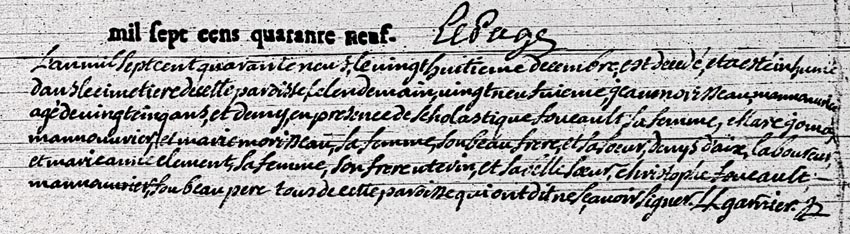 mil sept cens quarante neuf. LePage
L'an mil sept cent quarante neuf, le vingt huitieme decembre, est decedé, et a esté inhumé
dans le cimetiere de cette paroisse le lendemain, vingt neuvieme, jean moisseau, mannouvrier
agé de vingt cinq ans, et demy en presence de scholastique foucault, sa femme, et Marc
mannouvrier, et marie moisseau, sa femme, son beau frere, et sa sœur, denys daix, laboureur,
et marie anne clement, sa femme, son frere uterin, et sa belle sœur, christophe foucault,
mannouvrier, son beau pere tous de cette paroisse qui ont dit ne sçavoir signer. garnier.